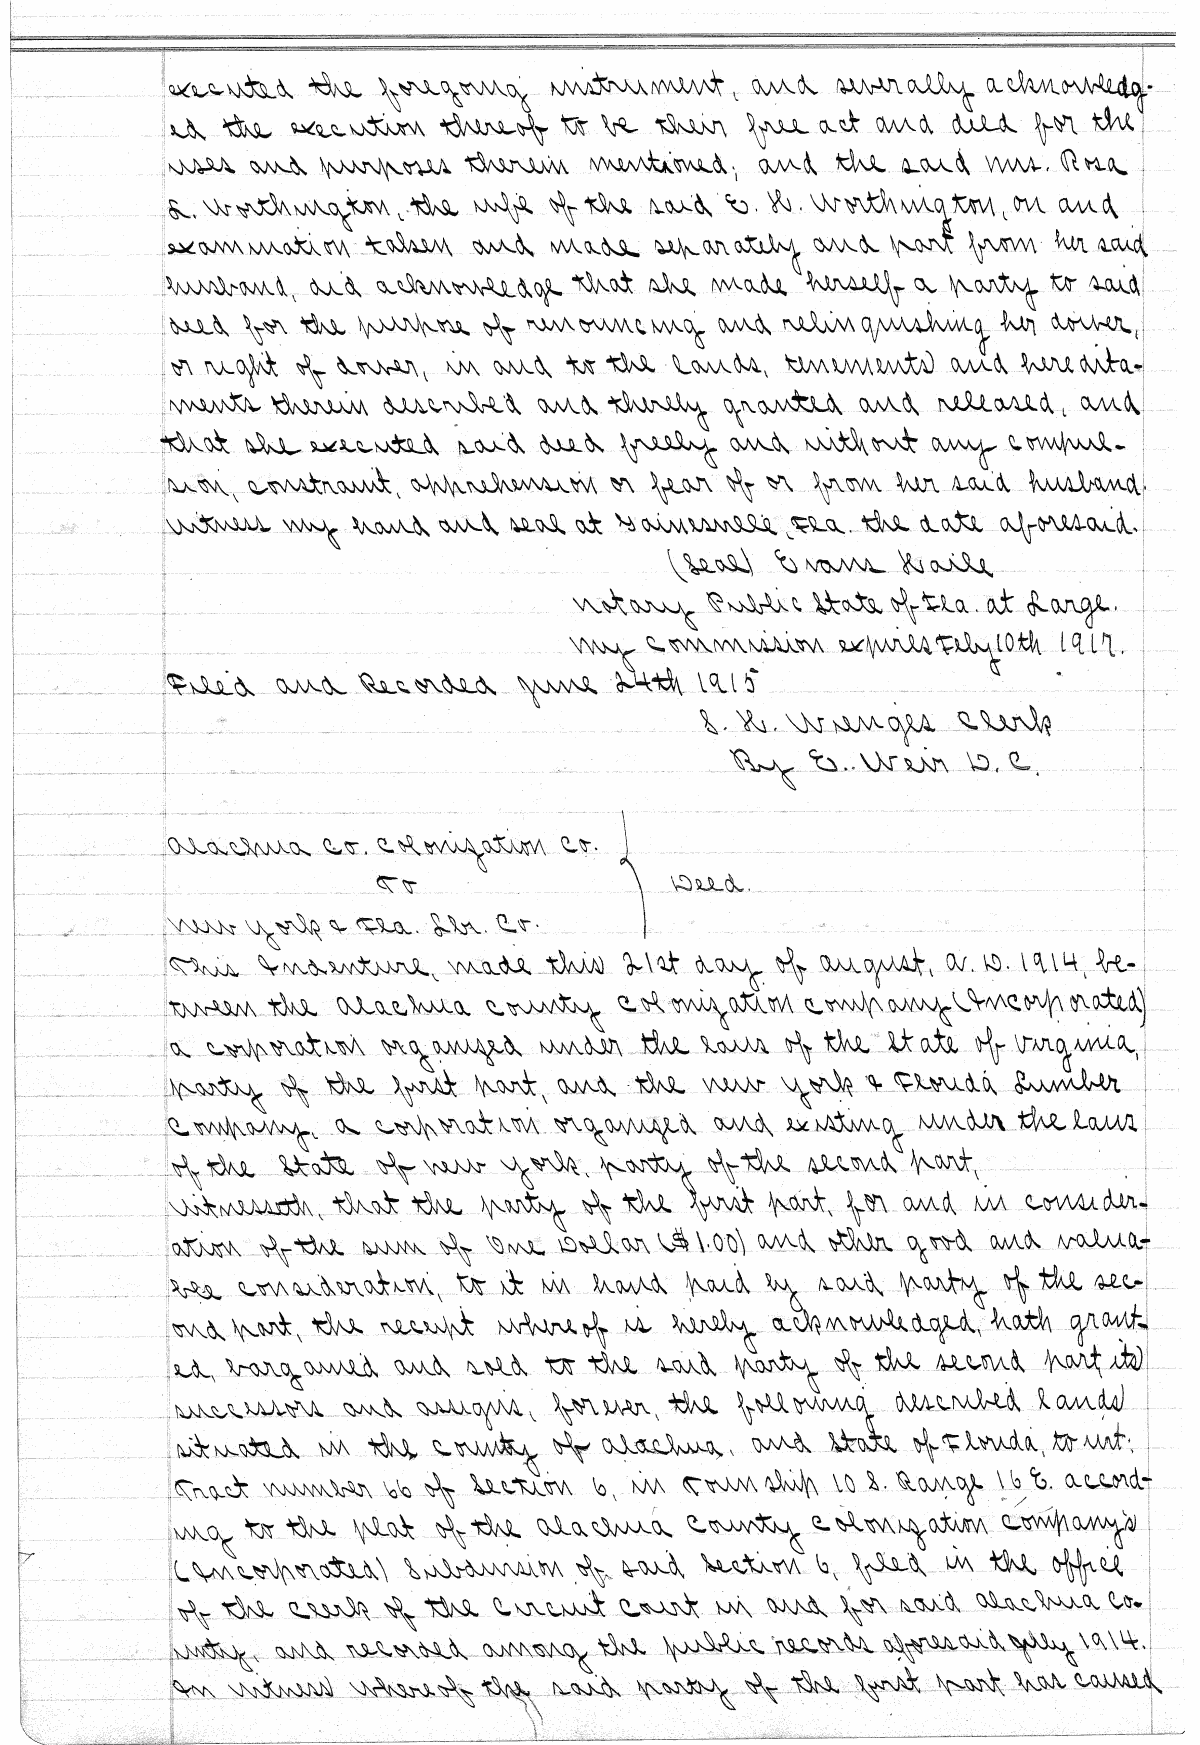 executed the foregoing instrument, and severally acknowledg-
ed the execution thereof to be their free act and deed for the
uses and purposes therein mentioned; and the said Mrs. Rosa
L. Worthington, the wife of the said E. H. Worthington, on and
examination taken and made separately and part from her said
husband, did acknowledge that she made herself a party to said
deed for the purpose of renouncing and relinquishing her dower,
or right of dower, in and to the lands, tenements and heredita-
ments therein described and thereby granted and released, and
that she executed said deed freely and without any compul-
sion, constraint, apprehension or fear of or from her said husband.
Witness my hand and seal at Gainesville, Fla. the date aforesaid.
(Seal) Evans Haile
Notary Public State of Fla. at Large.
My commission expires Feby 10th 1917.
Filed and Recorded June 24th 1915
S. H. Wienges Clerk
By E. Weir D. C.
Alachua Co. Colonization Co.
To
Deed.
New York & Fla. Lbr. Co.
This Indenture, made this 21st day of August, A. D. 1914, be-
tween the Alachua County Colonization Company (Incorporated)
a corporation organized under the laws of the State of Virginia,
party of the first part, and the New York & Florida Lumber
Company, a corporation organized and existing under the laws
of the State of New York, party of the second part,
Witnesseth, that the party of the first part, for and in consider-
ation of the sum of One Dollar ($1.00) and other good and valua-
ble consideration, to it in hand paid by said party of the sec-
ond part, the receipt whereof is hereby acknowledged, hath grant-
ed, bargained and sold to the said party of the second part, its
successors and assigns, forever, the following described lands
situated in the County of Alachua, and State of Florida, to wit:
Tract number 66 of Section 6, in Township 10 S. Range 16 E. accord-
ing to the plat of the Alachua County Colonization Company's
(Incorporated) Subdivision of said Section 6, filed in the office
of the Clerk of the Circuit Court in and for said Alachua Co-
unty, and recorded among the public records aforesaid July 1914.
In witness whereof the said party of the first part has caused